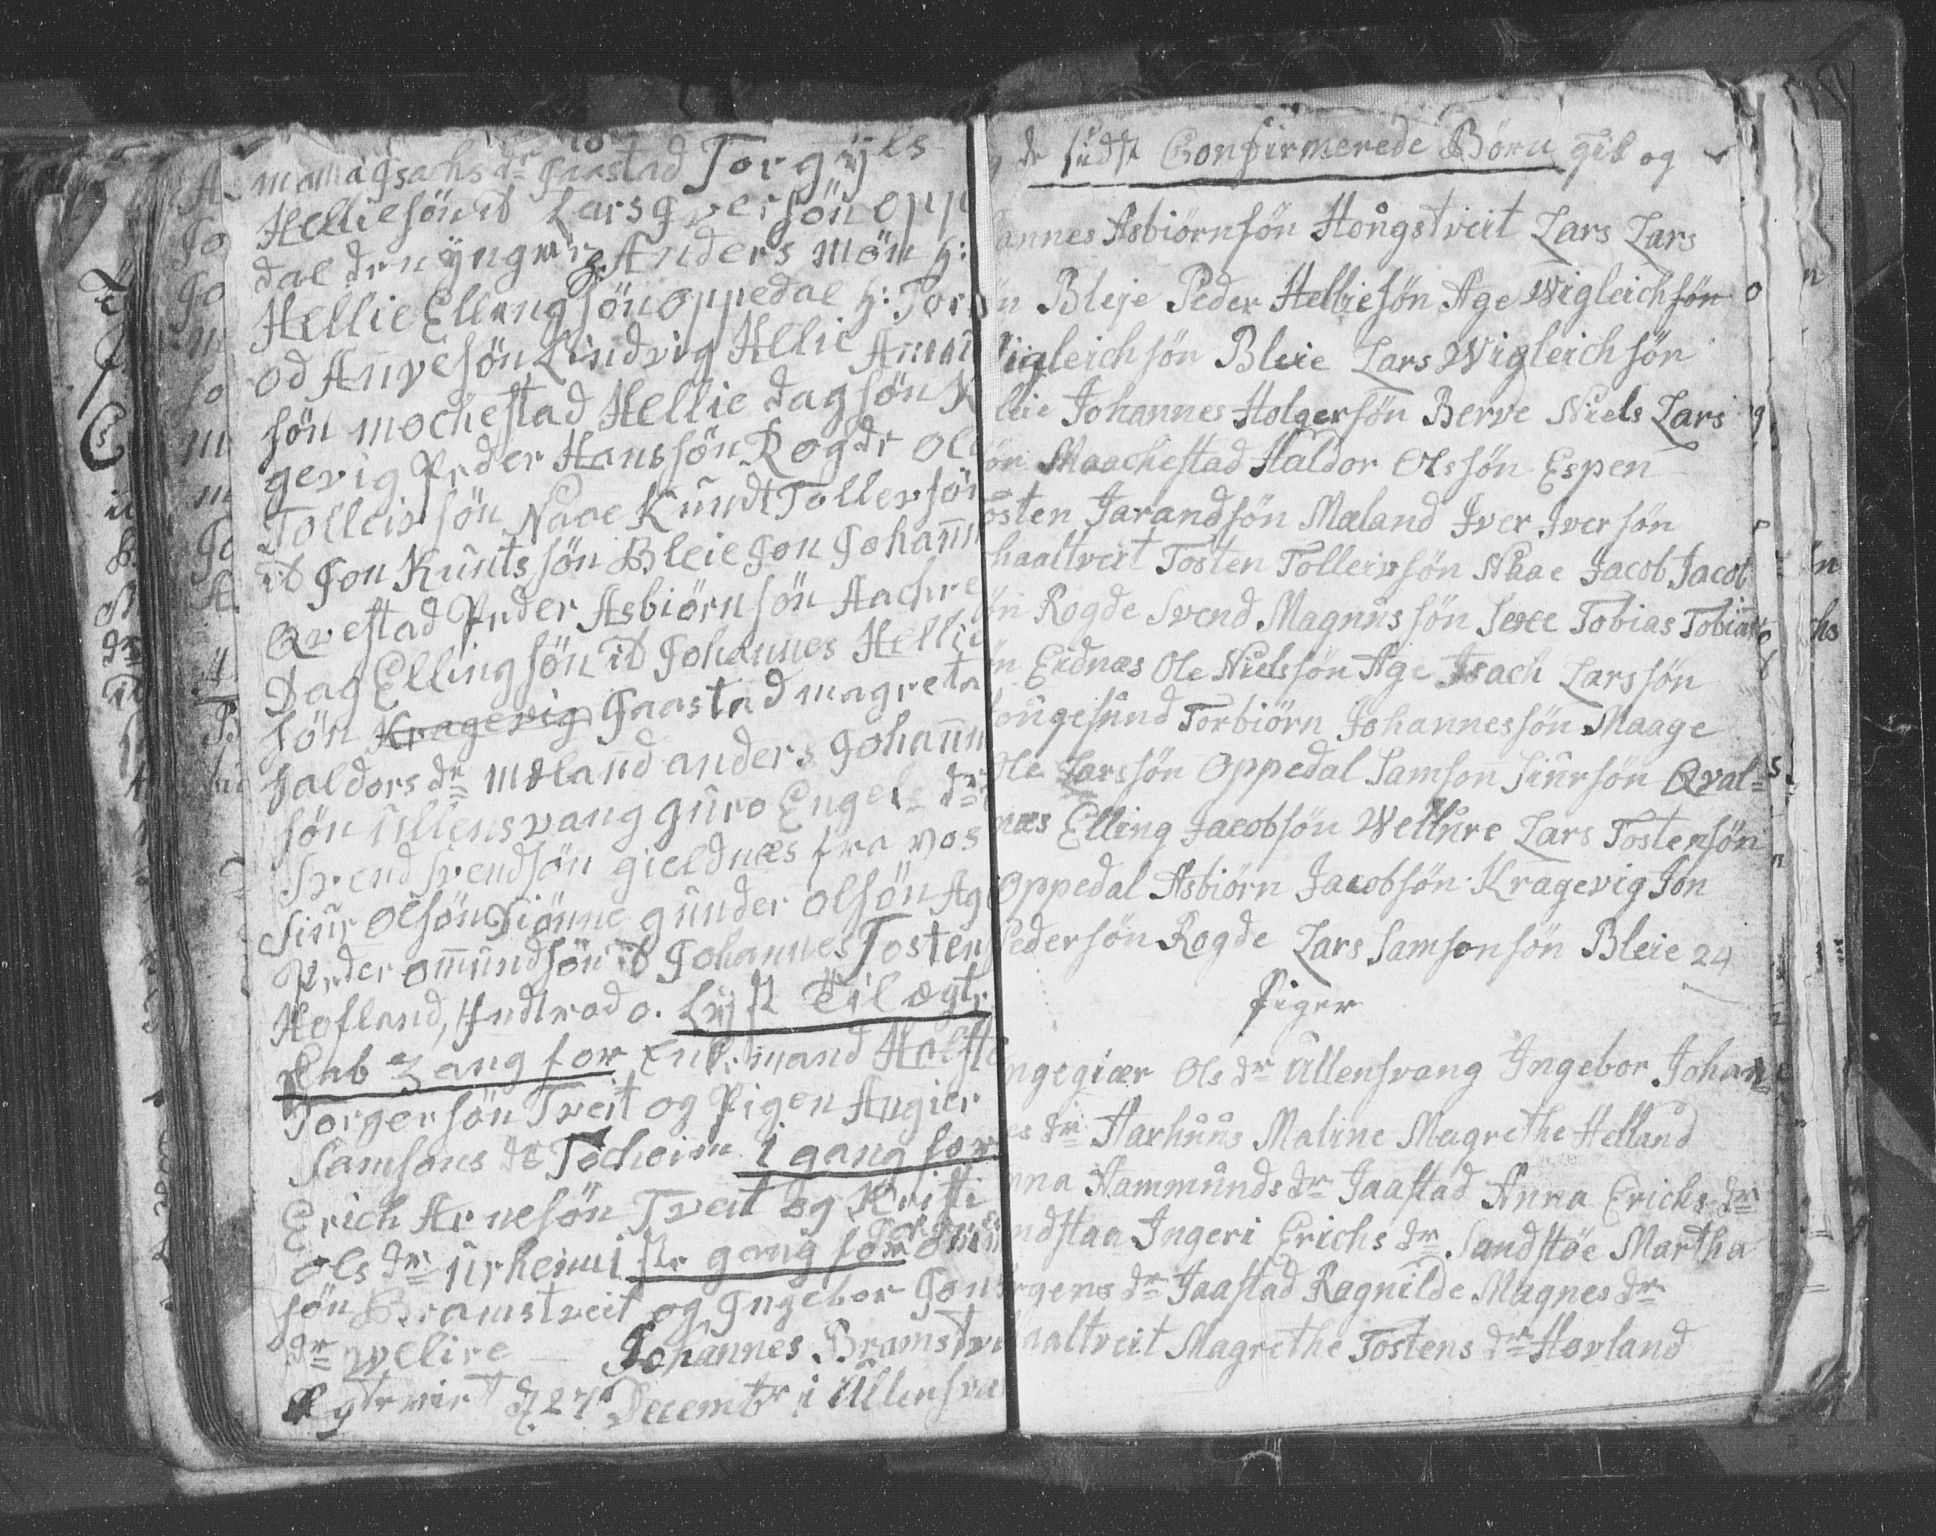 mama Jsachs dr Jaastad Torgyls
Helliesön ib Lars Jversön Opp
dal den yngre Anders mön h:
Hellie Ellingsön Oppedal h: Tor
od Anvesön Lindvig Hellie
sön mochestad Hellie Dagsön K
gevig Peder Hanssön Rogde Ole
Tolleivsön Naae Kundt Tollevsön
ib Jon Kuntssön Bleie Jon Johann
Qvestad Peder Asbiörnsön Aachre
Dag Ellingsön ib Johannes Hellie
sön Kragevig Jaastad magreta
haldors dr mæland anders Johann
sön Ullensvang guro Engels dr
Svend Svendsön gieldnæs fra Vos
Siur Olsön Diönne gunder Olsön Ag
Peder Omundsön ib Johannes Tosten
Hofland, Lyst Til ægte
skab 3 ang for Enkemand
Torgersön Tveit og Pigen Angier
Samsons dr Tocheim i gang for
Erich Arnesön Tveit og Kristi
Ols dr Urheim 1ste gang for
sön Bramstveit og Jngebor Jon
dr Velire — Johannes Bramstve
Egteviet d 27 Decembr i Ullensva
de sidst Confirmerede Börn gib og
annes Asbiörnsön Hougstveit Lars Lars
ön Bleje Peder Helliesön Age Wigleichsön
igleichsön Bleie Lars Wigleichsön
leie Johannes Holgersön Berve Niels Lars
ön Maachestad Haldor Olssön Espen
osten Jarandsön Mæland Jver Jversön
haaltveit Tosten Tolleivsön Naae Jacob Jacob
ön Rogde Svend Magnussön Sexe Tobias Tobias
ön Eidnæs Ole Nielssön Age Jsach Larssön
ougesund Torbiörn Johannessön Maage
Ole Larssön Oppedal Samson Siursön Qval=
næs Elling Jacobsön Wellure Lars Tostensön
Oppedal Asbiörn Jacobsön Kragevig Jon
Pedersön Rogde Lars Samsonsön Bleie 24
Piger
ngegiær Ols dr Ullensvang Ingebor Johan
es dr Aarhuus Maline Magrethe Helland
nna Aammunds dr Jaastad Anna Erichs dr
ndstaa Ingeri Erichs dr Sandstöe Martha
rgens dr Jaastad Ragnilde Magnes dr
aaltveit Magrethe Tostens dr Hovland